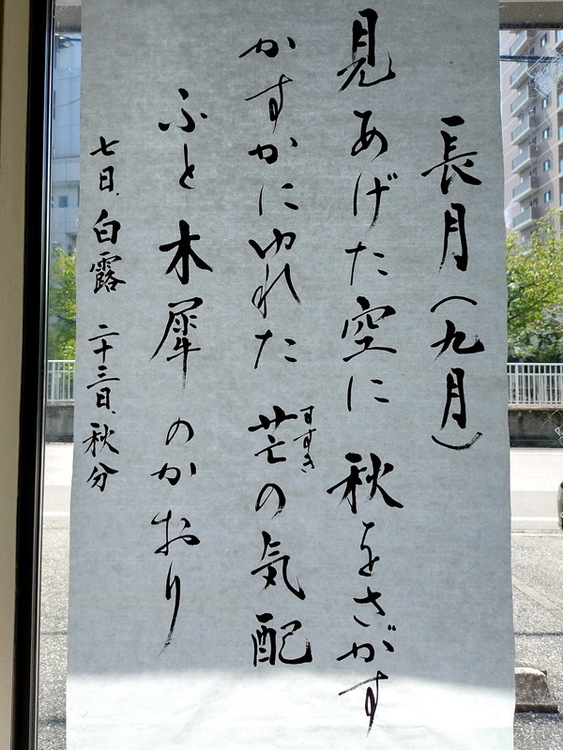 長月（九月）
見あげた空に 秋をさがす
かすかにゆれた 芒の気配
すすき
ふと木犀のかおり
七日、白露 二十三日、秋分